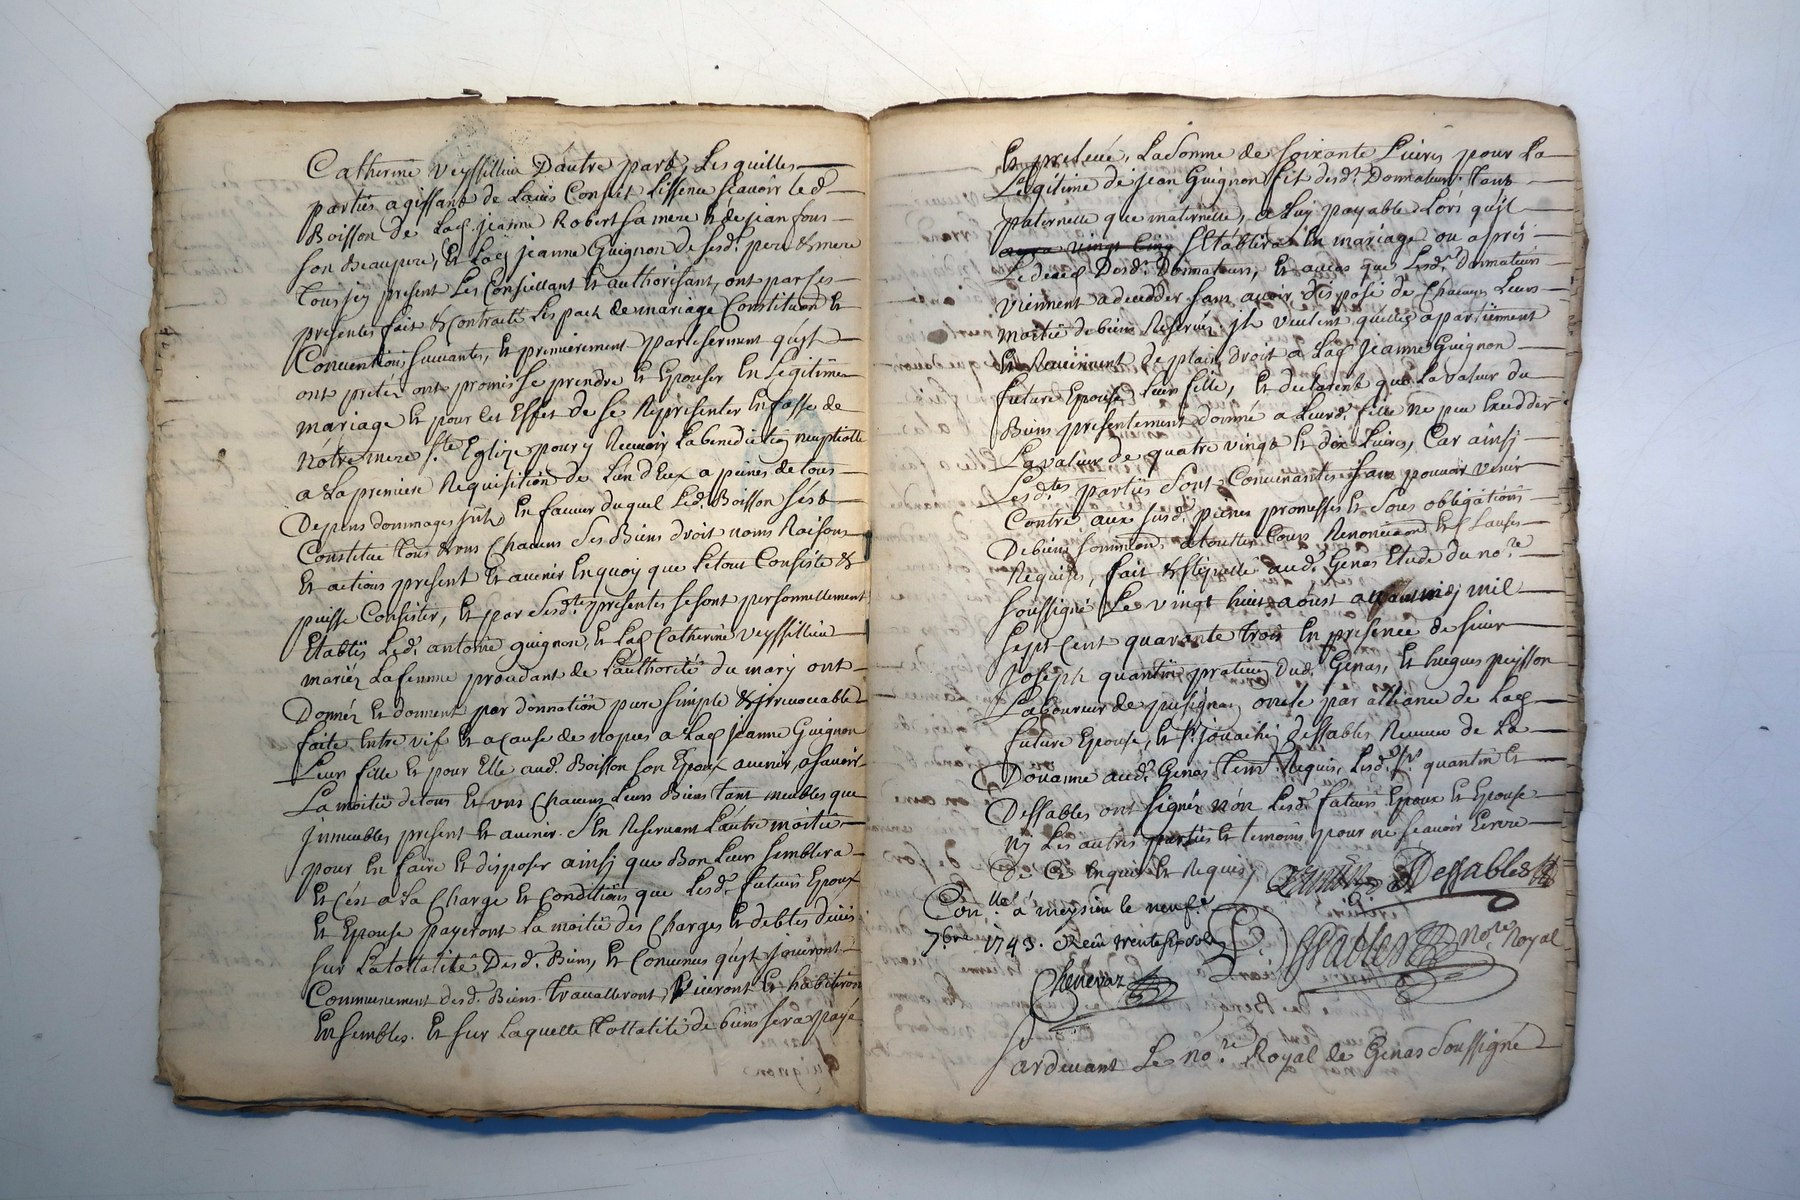 Catherine Veyssilliu D'autre part, Lesquilles
parties agissant de Lavis Conseil Lissence scavoir led.
Boisson de Laq. jeanne Robert sa mere Et de jean fons
son Beaupere, Et Laq. jeanne Guignon de sesd. pere & mere
Tous jcy present Les Conseillant Et authorisant, ont par ses
presentes fait & Contracté Les pach de mariage Constitution Et
Conventions suivantes, Et premierement parlesernent qu'jt
ont pretéz ont promis se prendre Et Epouser En Legitime
mariage Et pour cet Effet de se Représenter Enfasse de
nôtre mere S.te Eglize pour y Recevoir La benediction neuptialle
a La premiere Requisition de L'un d'Eux a peines de tous
Depens dommages jnth En faveur duquel Led. Boisson s'est
Constitué Tous & uns Chacuns Ses Biens droit noms Raisons
Et actions present Et avenir En quoy que Le tout Consiste &
puisse Consister, Et par sesd.tes presentes se sont personnellement
Etablis Led. antoine guignon, Et Laq. Catherine Veyssilliu
mariéz La femme procedant de L'authorité du mary ont
Donnéz Et donnent par donnation pure simple & jrrevocable
faite Entre vif Et a cause de nopces a Laq. Jeanne Guignon
Leur fille Et pour Elle aud. Boisson son Epoux avenir, a scavoir
La moitié de tous Et uns Chacuns Leurs Biens tant meubles que
jmmeubles present Et avenir. S'En Reservant L'autre moitié
pour En faire Et disposer ainsj que Bon Leur semblera
Et c'est a La Charge Et Conditions que Lesd. futurs Epoux
Et Epouse payeront La moitié des Charges Et debtes deües
sur La tottalité Desd. Biens, Et Convenus qu'jt jouiront
Communement desd. Biens. travailleront, Viveront Et habiteron
Ensembles. Et sur Laquelle Tottalité de biens sera payé
Et prelevé, La somme de soixante Livres pour La
Legitime de jean Guignon fils desd. Donnateurs. Tant
paternelle que maternelle, a Luy payable Lors qu'jl
aura vingt cinq S'Etablira En mariage ou aprés
Le deceq Desd. Donnateurs, Et au cas que Lesd. Donnateurs
Viennent a decedder sans avoir disposé de Chacuns Leurs
moitié de biens Reservéz. jls veulent qu'elles apartiennent
Et Reviennent de plain droit a Laq. Jeanne Guignon
future Epouse Leur fille, Et declarent que La valeur du
Biens presentement donné a Leurd. fille ne peu Excedder
La valeur de quatre vingt Et dix Livres, Car ainsj
Lesd.tes parties Sont Convenantes sans pouvoir venir
Contre aux susd. peines promesses Et Sous obligations
De biens soumissions a toutes Cours Renonciaon Et Clauses
Requises, fait & stipullé aud. Genas Etude du no.re
soussigné Le vingt huit aoust avant midj mil
sept cent quarante trois En presence de sieur
Joseph quantin praticien dud. Genas, Et hugues puisson
Laboureur de pusignan oncle par alliance de Laq.
future Epouse, Et S.r jouaihj Dessables Receveur de La
Douanne aud. Genas Tem. Requis, Lesd. S.rs quantin Et
Dessables ont signéz nón Lesd. futurs Epoux Et Epouse
ny Les autres parties Et temoins pour ne scavoir Ecrire
De Ce Enquis Et Requis
quantin Dessables
Con.llé á meysieu le neuf.e
7.bre 1743. Receu trente sols
no.re Royal
Chenevaz
Pardevant Le no.re Royal de Genas Soussigné